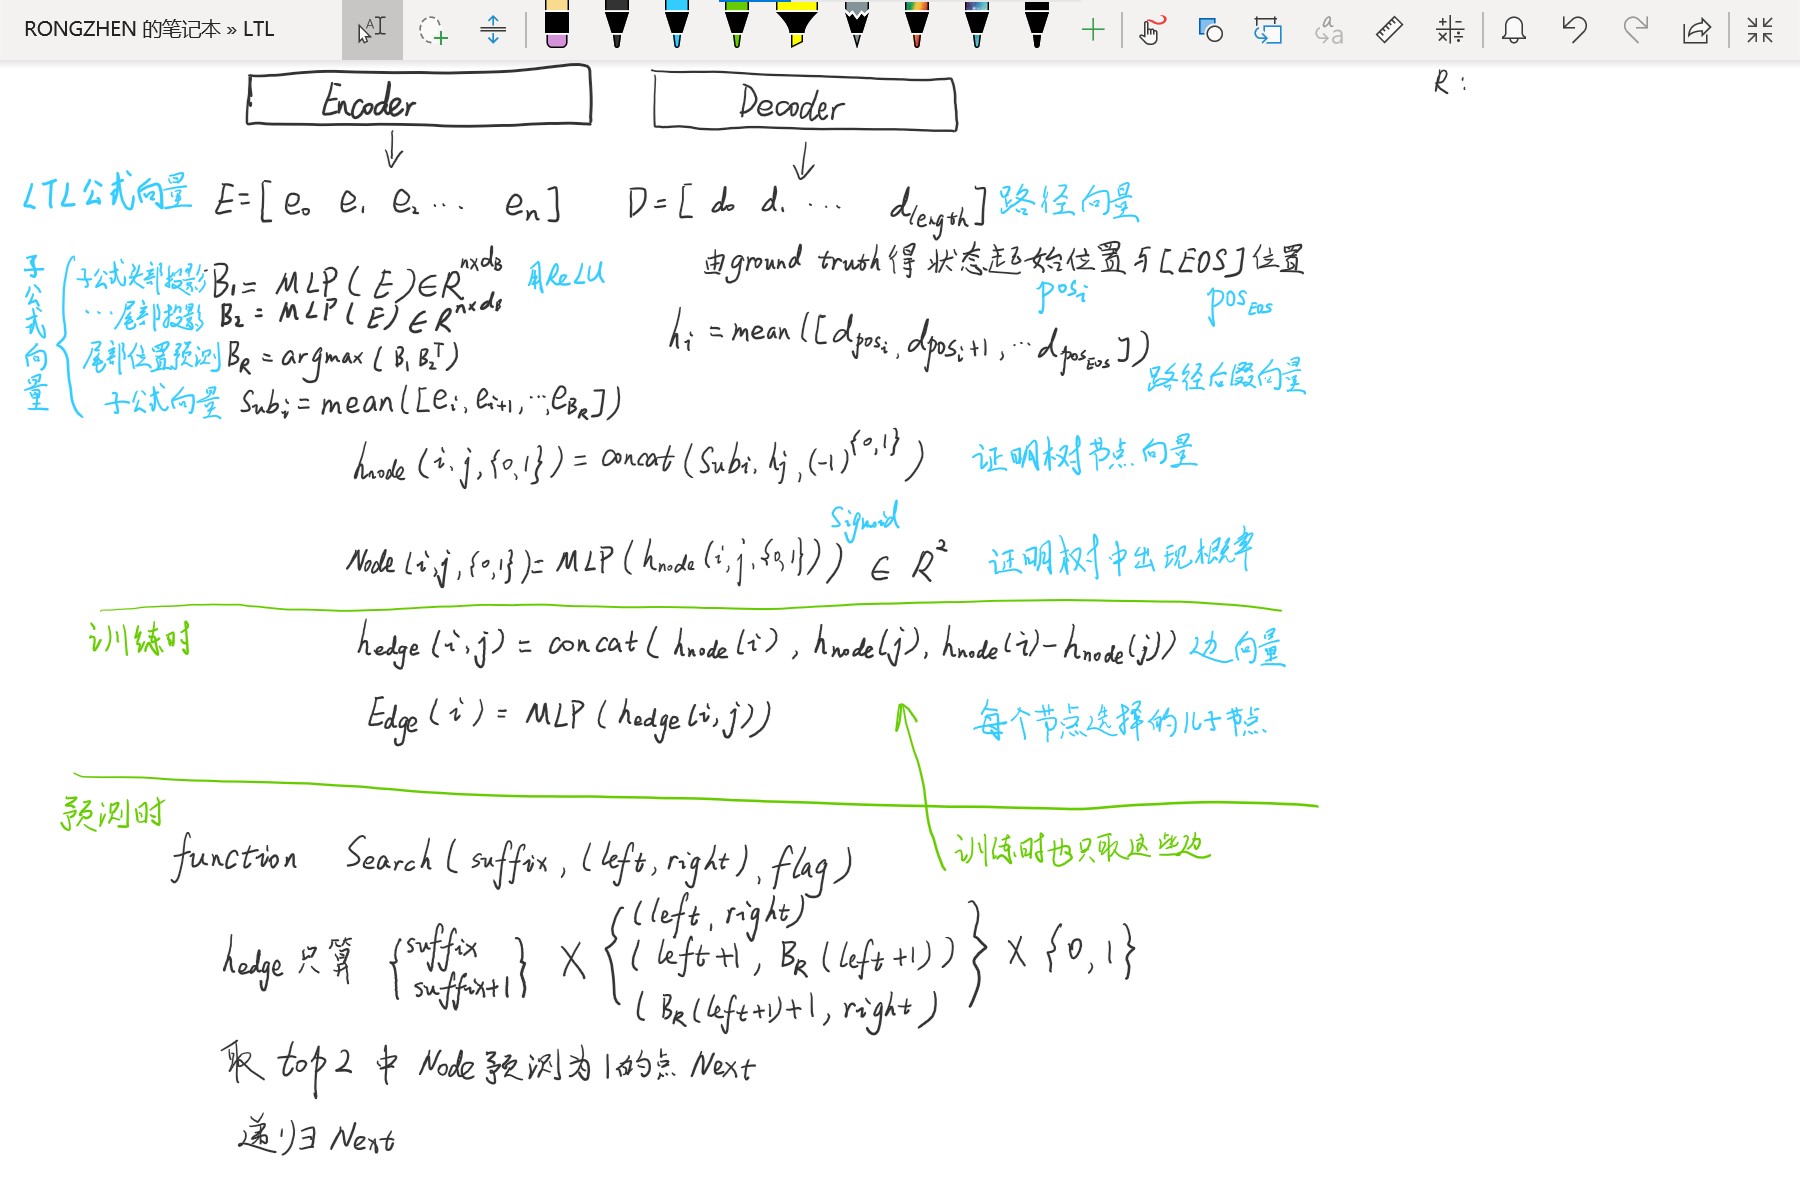 RONGZHEN 的笔记本 » LTL
R:
Encoder
Decoder
LTL公式向量 E=[e₀ e₁ e₂ ⋯ eₙ]
D=[d₀ d₁ ⋯ d_length] 路径向量
子公式向量
子公式头部投影 B₁ = MLP(E) ∈ R^{n×d_B} 用ReLU
⋯尾部投影 B₂ = MLP(E) ∈ R^{n×d_B}
尾部位置预测 B_R = argmax(B₁B₂ᵀ)
子公式向量 Sub_i = mean([e_i, e_{i+1}, ⋯, e_{B_R}])
由ground truth得状态起始位置与[EOS]位置
pos_i pos_EOS
h_i = mean([d_{pos_i}, d_{pos_i+1}, ⋯ d_{pos_EOS}])
路径后缀向量
h_node(i, j, {0,1}) = concat(Sub_i, h_j, (-1)^{0,1}) 证明树节点向量
Sigmoid
Node(i, j, {0,1}) = MLP(h_node(i, j, {0,1})) ∈ R² 证明树中出现概率
训练时 h_edge(i, j) = concat(h_node(i), h_node(j), h_node(i)-h_node(j)) 边向量
Edge(i) = MLP(h_edge(i, j)) 每个节点选择的儿子节点
预测时
训练时也只取这些边
function Search(suffix, (left, right), flag)
h_edge 只算 {suffix suffix+1} × {(left, right) (left+1, B_R(left+1)) (B_R(left+1)+1, right)} × {0,1}
取 top2 中 Node预测为1的点 Next
递归 Next